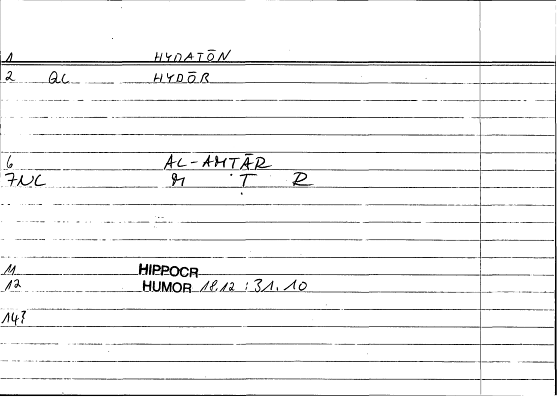 1 HYDATŌN
2 QC HYDŌR
6 AL-AMṬĀR
7NC M Ṭ R
11 HIPPOCR
12 HUMOR 18.12 : 31.10
14?